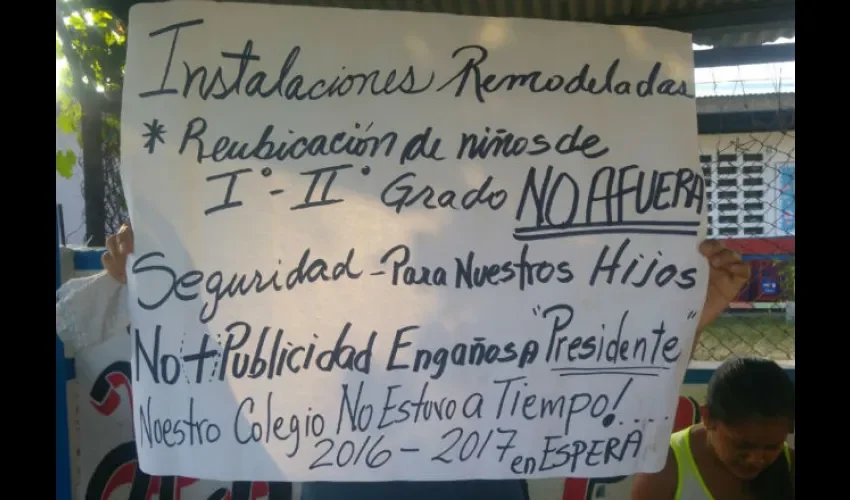 Instalaciones Remodeladas
* Reubicación de niños de
I° - II° Grado NO AFUERA
Seguridad - Para Nuestros Hijos
No + Publicidad Engañosa "Presidente"
Nuestro Colegio No Estuvo a Tiempo!....
2016 - 2017 en ESPERA